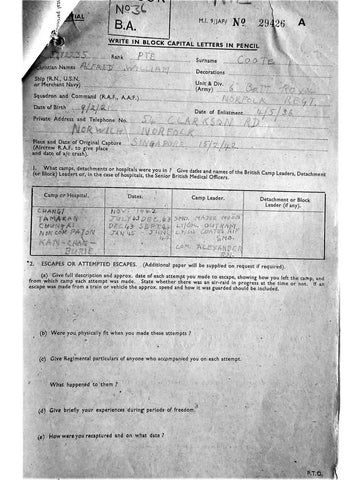 No 36
B.A.
M.I. 9/JAP/ No 29426 A
WRITE IN BLOCK CAPITAL LETTERS IN PENCIL
Rank PTE Surname COOTE
Christian Names ALFRED WILLIAM Decorations
Ship (R.N., U.S.N. or Merchant Navy) Unit & Div. (Army) 6 BATT
Squadron and Command (R.A.F., A.A.F.) NORFOLK REGT
Date of Birth 9/2/21 Date of Enlistment 4/5/36
Private Address and Telephone No. 54 CLARKSON RD
NORWICH NORFOLK
Place and Date of Original Capture SINGAPORE 15/2/42
(Aircrew R.A.F. to give place
and date of a/c crash).
1. What camps, detachments or hospitals were you in ? Give dates and names of the British Camp Leaders, Detachment
(or Block) Leaders or, in the case of hospitals, the Senior British Medical Officers.
Camp or Hospital. Dates. Camp Leader. Detachment or Block Leader (if any).
CHANGI NOV. 1942
TAMAKAN JULY 43 DEC 43 MAJOR
CHUNGKAI DEC 43
NAKOM PATON JAN 45 JUNE
KAN-CHAN- ALEXANDER
*2. ESCAPES OR ATTEMPTED ESCAPES. (Additional paper will be supplied on request if required).
(a) Give full description and approx. date of each attempt you made to escape, showing how you left the camp, and
from which camp each attempt was made. State whether there was an air-raid in progress at the time or not. If an
escape was made from a train or vehicle the approx. speed and how it was guarded should be included.
(b) Were you physically fit when you made these attempts ?
(c) Give Regimental particulars of anyone who accompanied you on each attempt.
What happened to them ?
(d) Give briefly your experiences during periods of freedom.
(e) How were you recaptured and on what date ?
P.T.O.